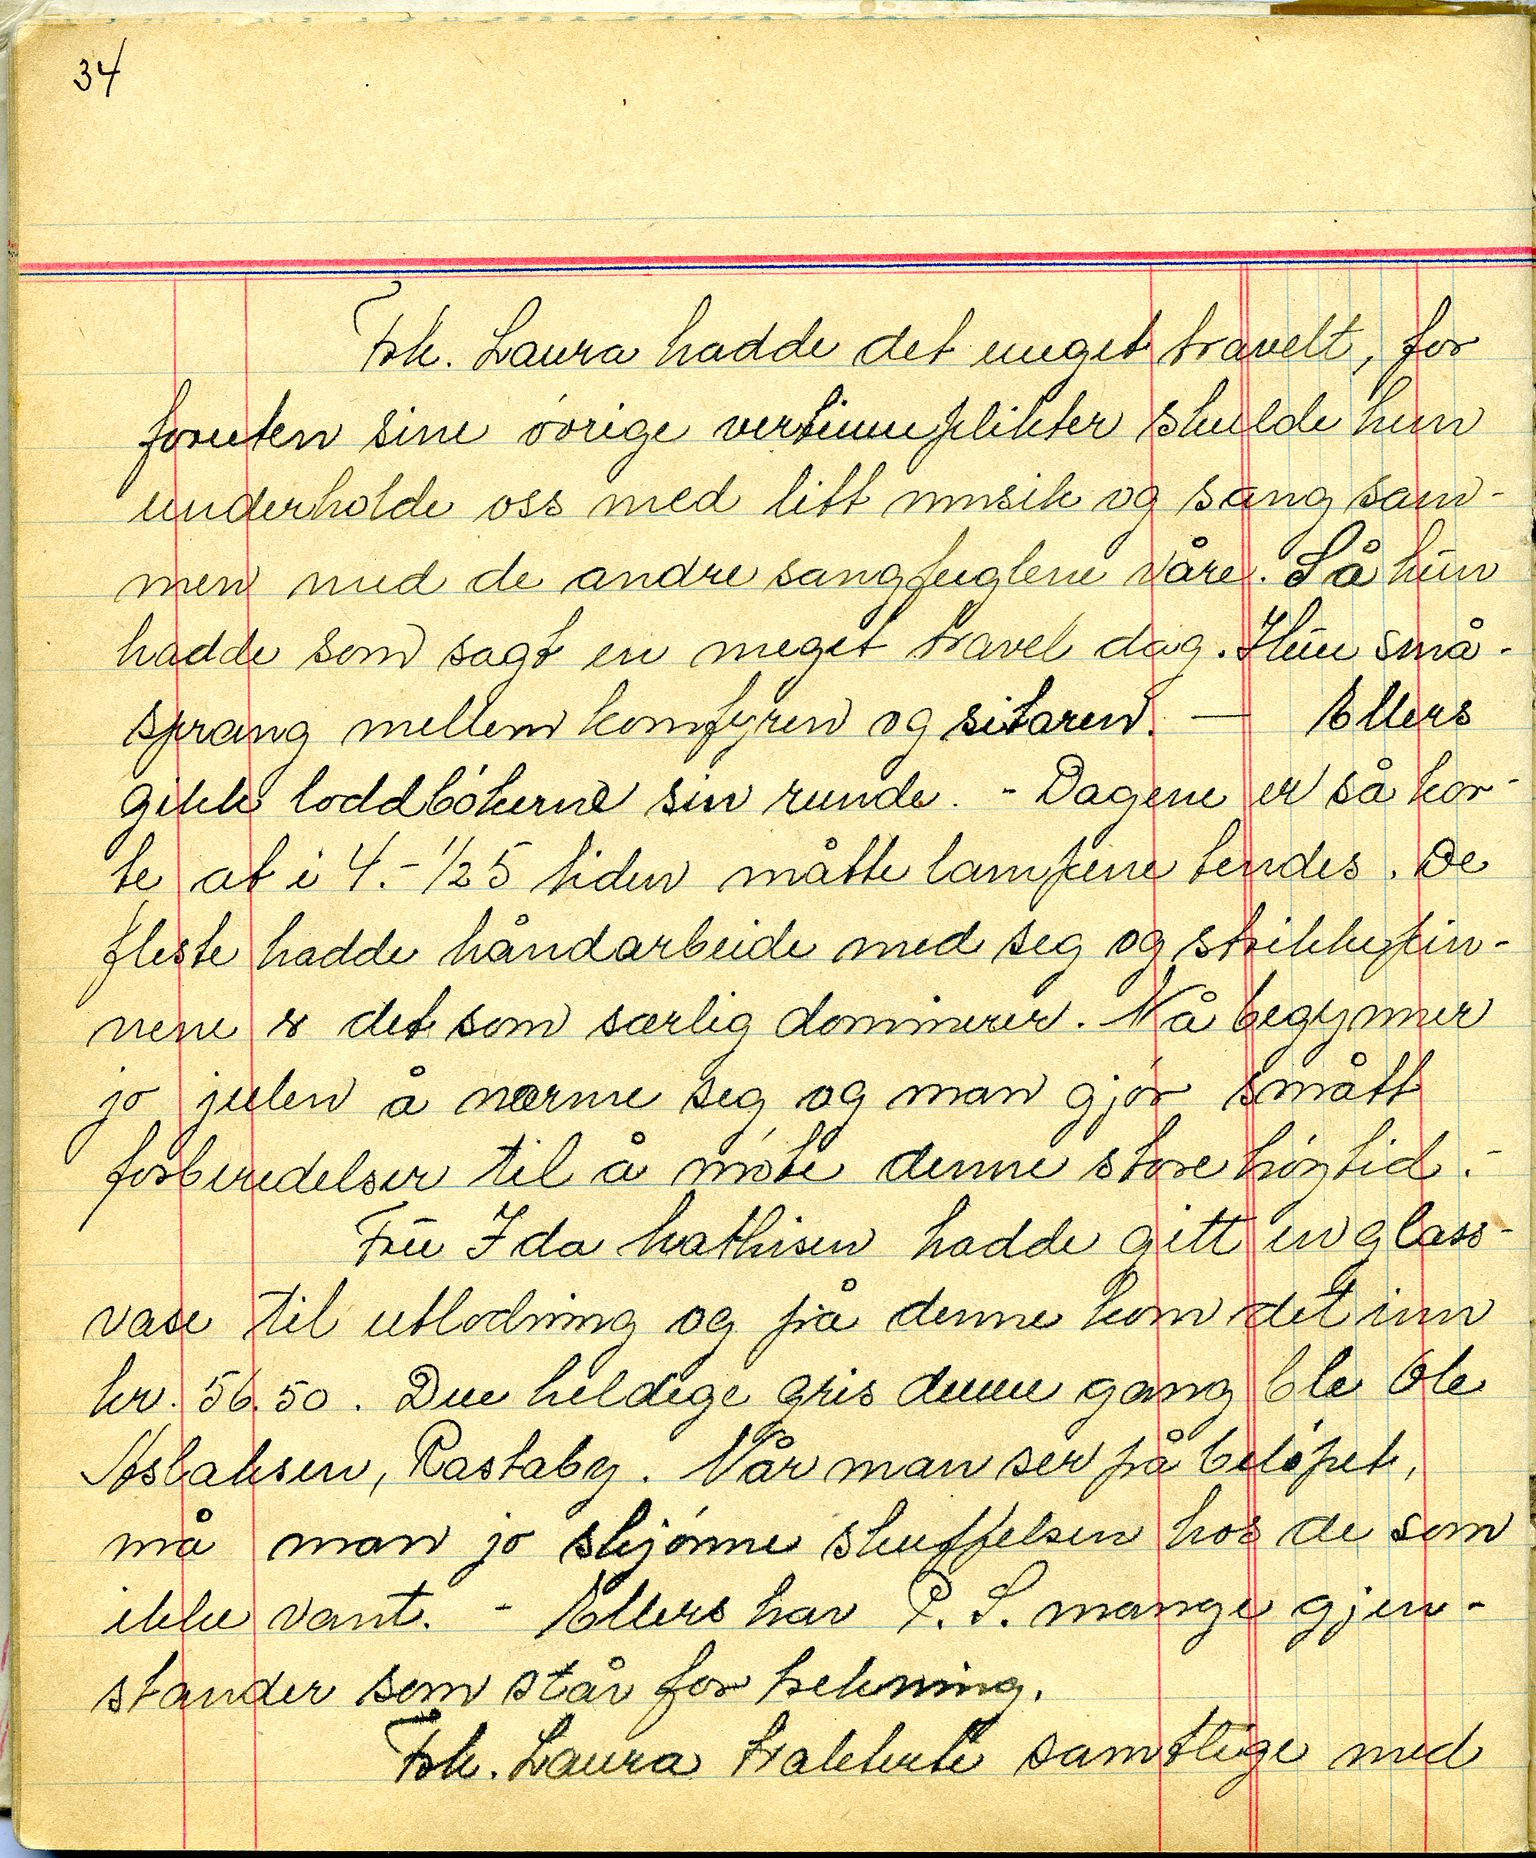 34
Frk. Laura hadde det meget travelt, for
foruten sine övrige vertinneplikter skulde hun
underholde oss med litt musik og sang sam-
men med de andre sangfuglene våre. Så hun
hadde som sagt en meget travel dag. Hun små-
sprang mellem komfyren og sitaren. — Ellers
gikk loddbökerne sin runde. - Dagene er så kor-
te at i 4.-½5 tiden måtte lampene tendes. De
fleste hadde håndarbeide med seg og strikkepin-
nene er det som særlig dominerer. Nå begynner
jo julen å nærme seg og man gjör smått
forberedelser til å möte denne store höytid.-
Fru Ida Mathisen hadde gitt en glass-
vase til utlodning og på denne kom det inn
kr. 56.50. Den heldige gris denne gang ble Ole
Aslaksen, Rastaby. Når man ser på belöpet,
må man jo skjönne skuffelsen hos de som
ikke vant. - Ellers har P. S. mange gjen-
stander som står for trekning.
Frk. Laura trakterte samtlige med